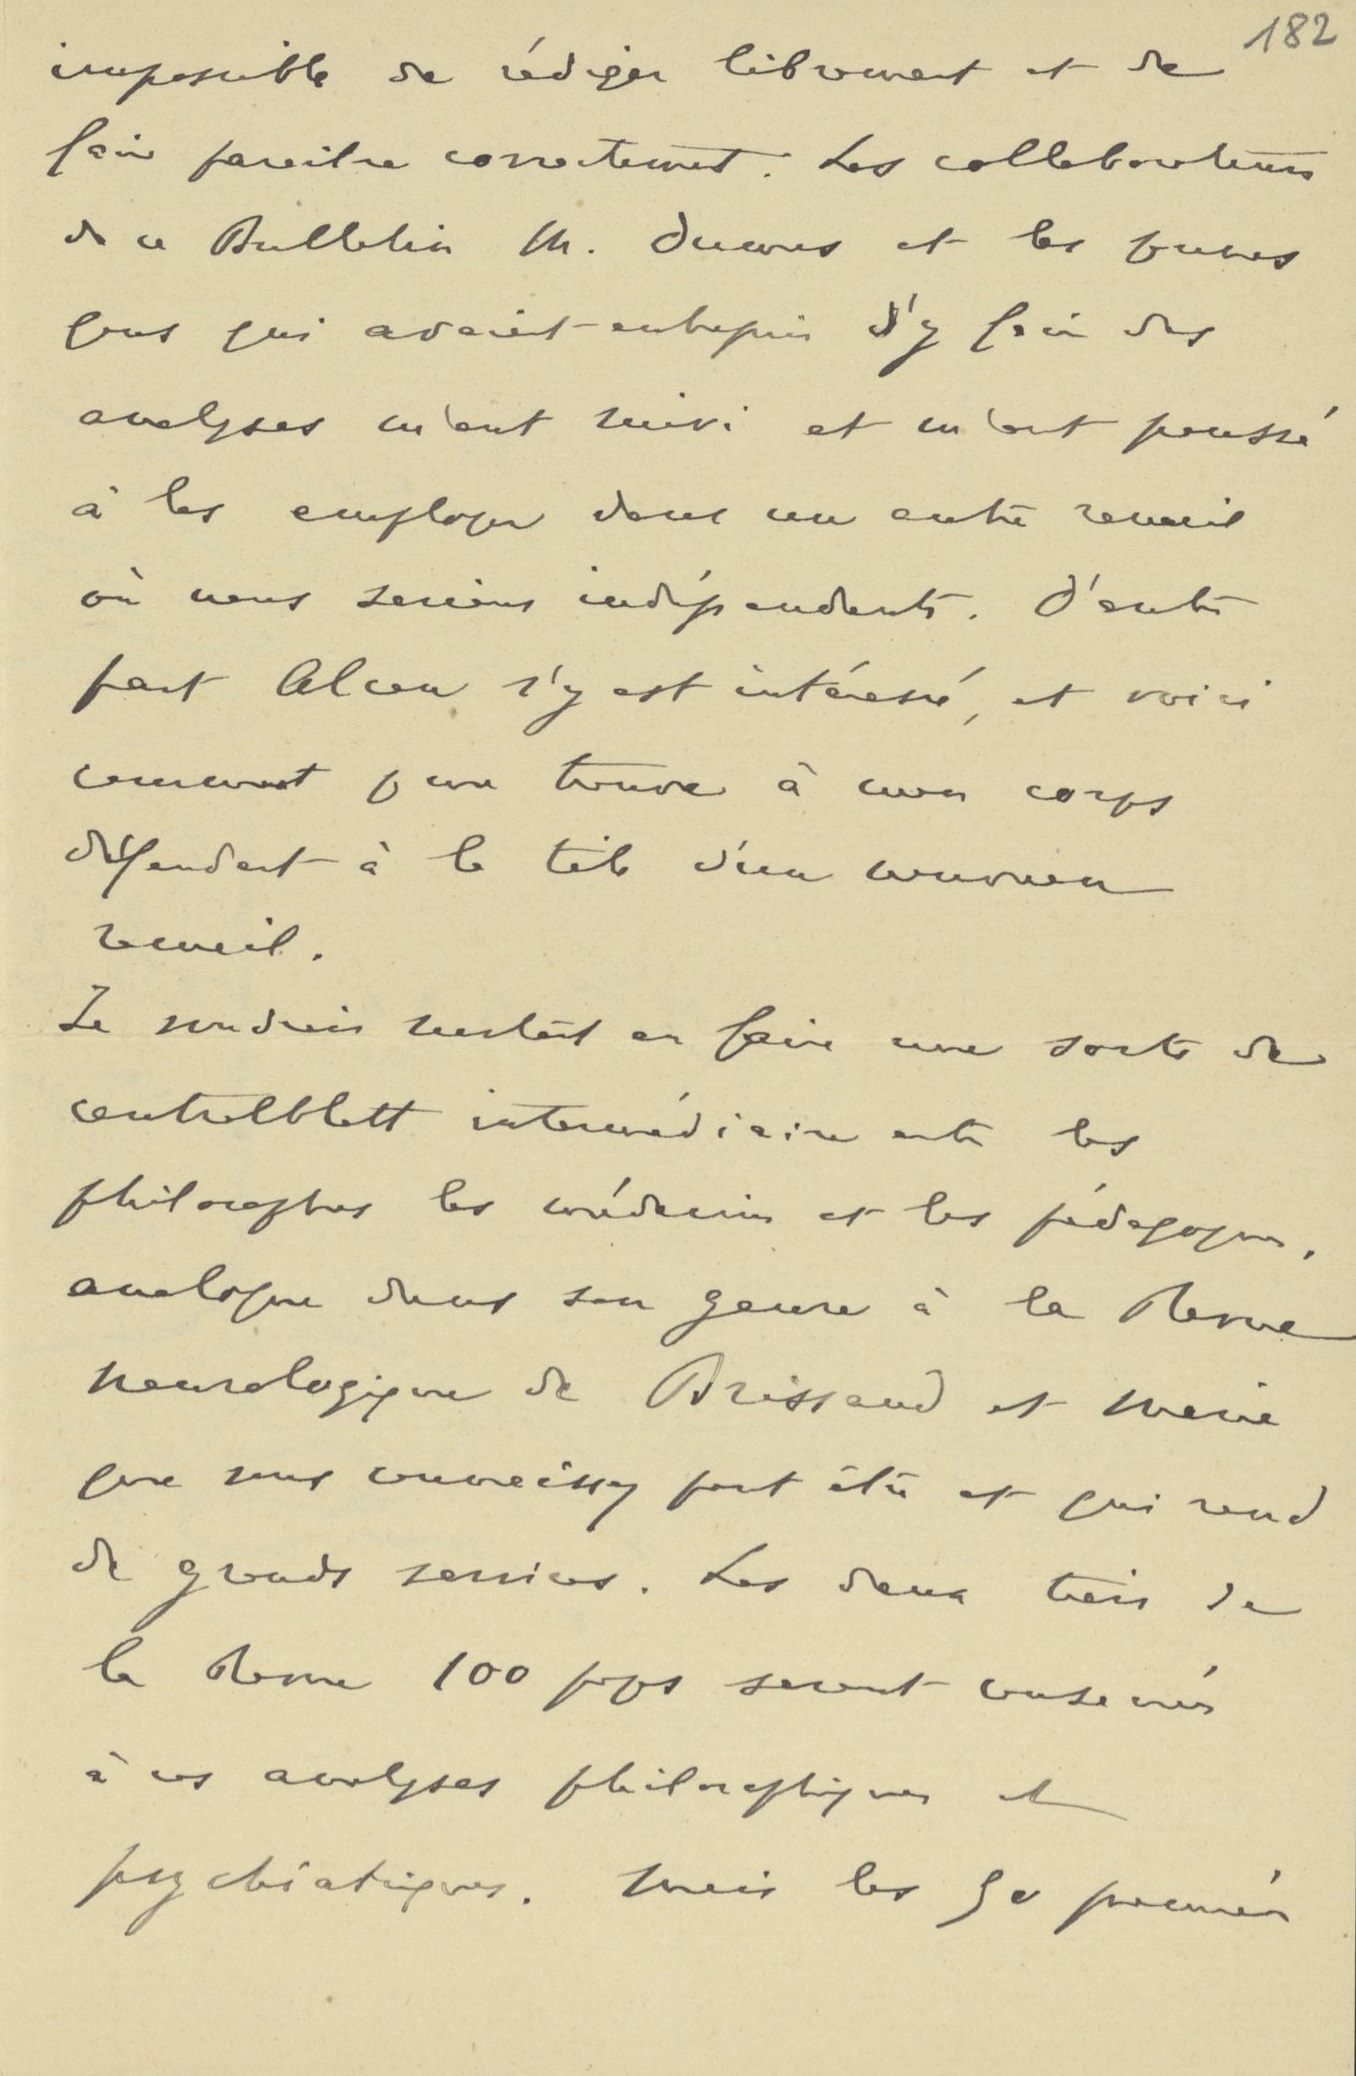 182
impossible de rédiger librement et de
faire paraître correctement. Les collaborateurs
de ce Bulletin M. Dumas et les jeunes
gens qui avaient entrepris d'y faire des
analyses m'ont suivi et m'ont poussé
à les employer dans un autre recueil
où nous serions indépendants. D'autre
part Alcan s'y est intéressé, et voici
comment je me trouve à mon corps
défendant à la tête d'un nouveau
recueil.
Je voudrais surtout en faire une sorte de
centralblatt intermédiaire entre les
philosophes les médecins et les pédagogues,
analogue dans son genre à la Revue
neurologique de Brissaud et Marie
que vous connaissez peut être et qui rend
de grands services. Les deux tiers de
la Revue 100 pages seront consacrés
à ces analyses philosophiques et
psychiatriques. Mais les 50 premières